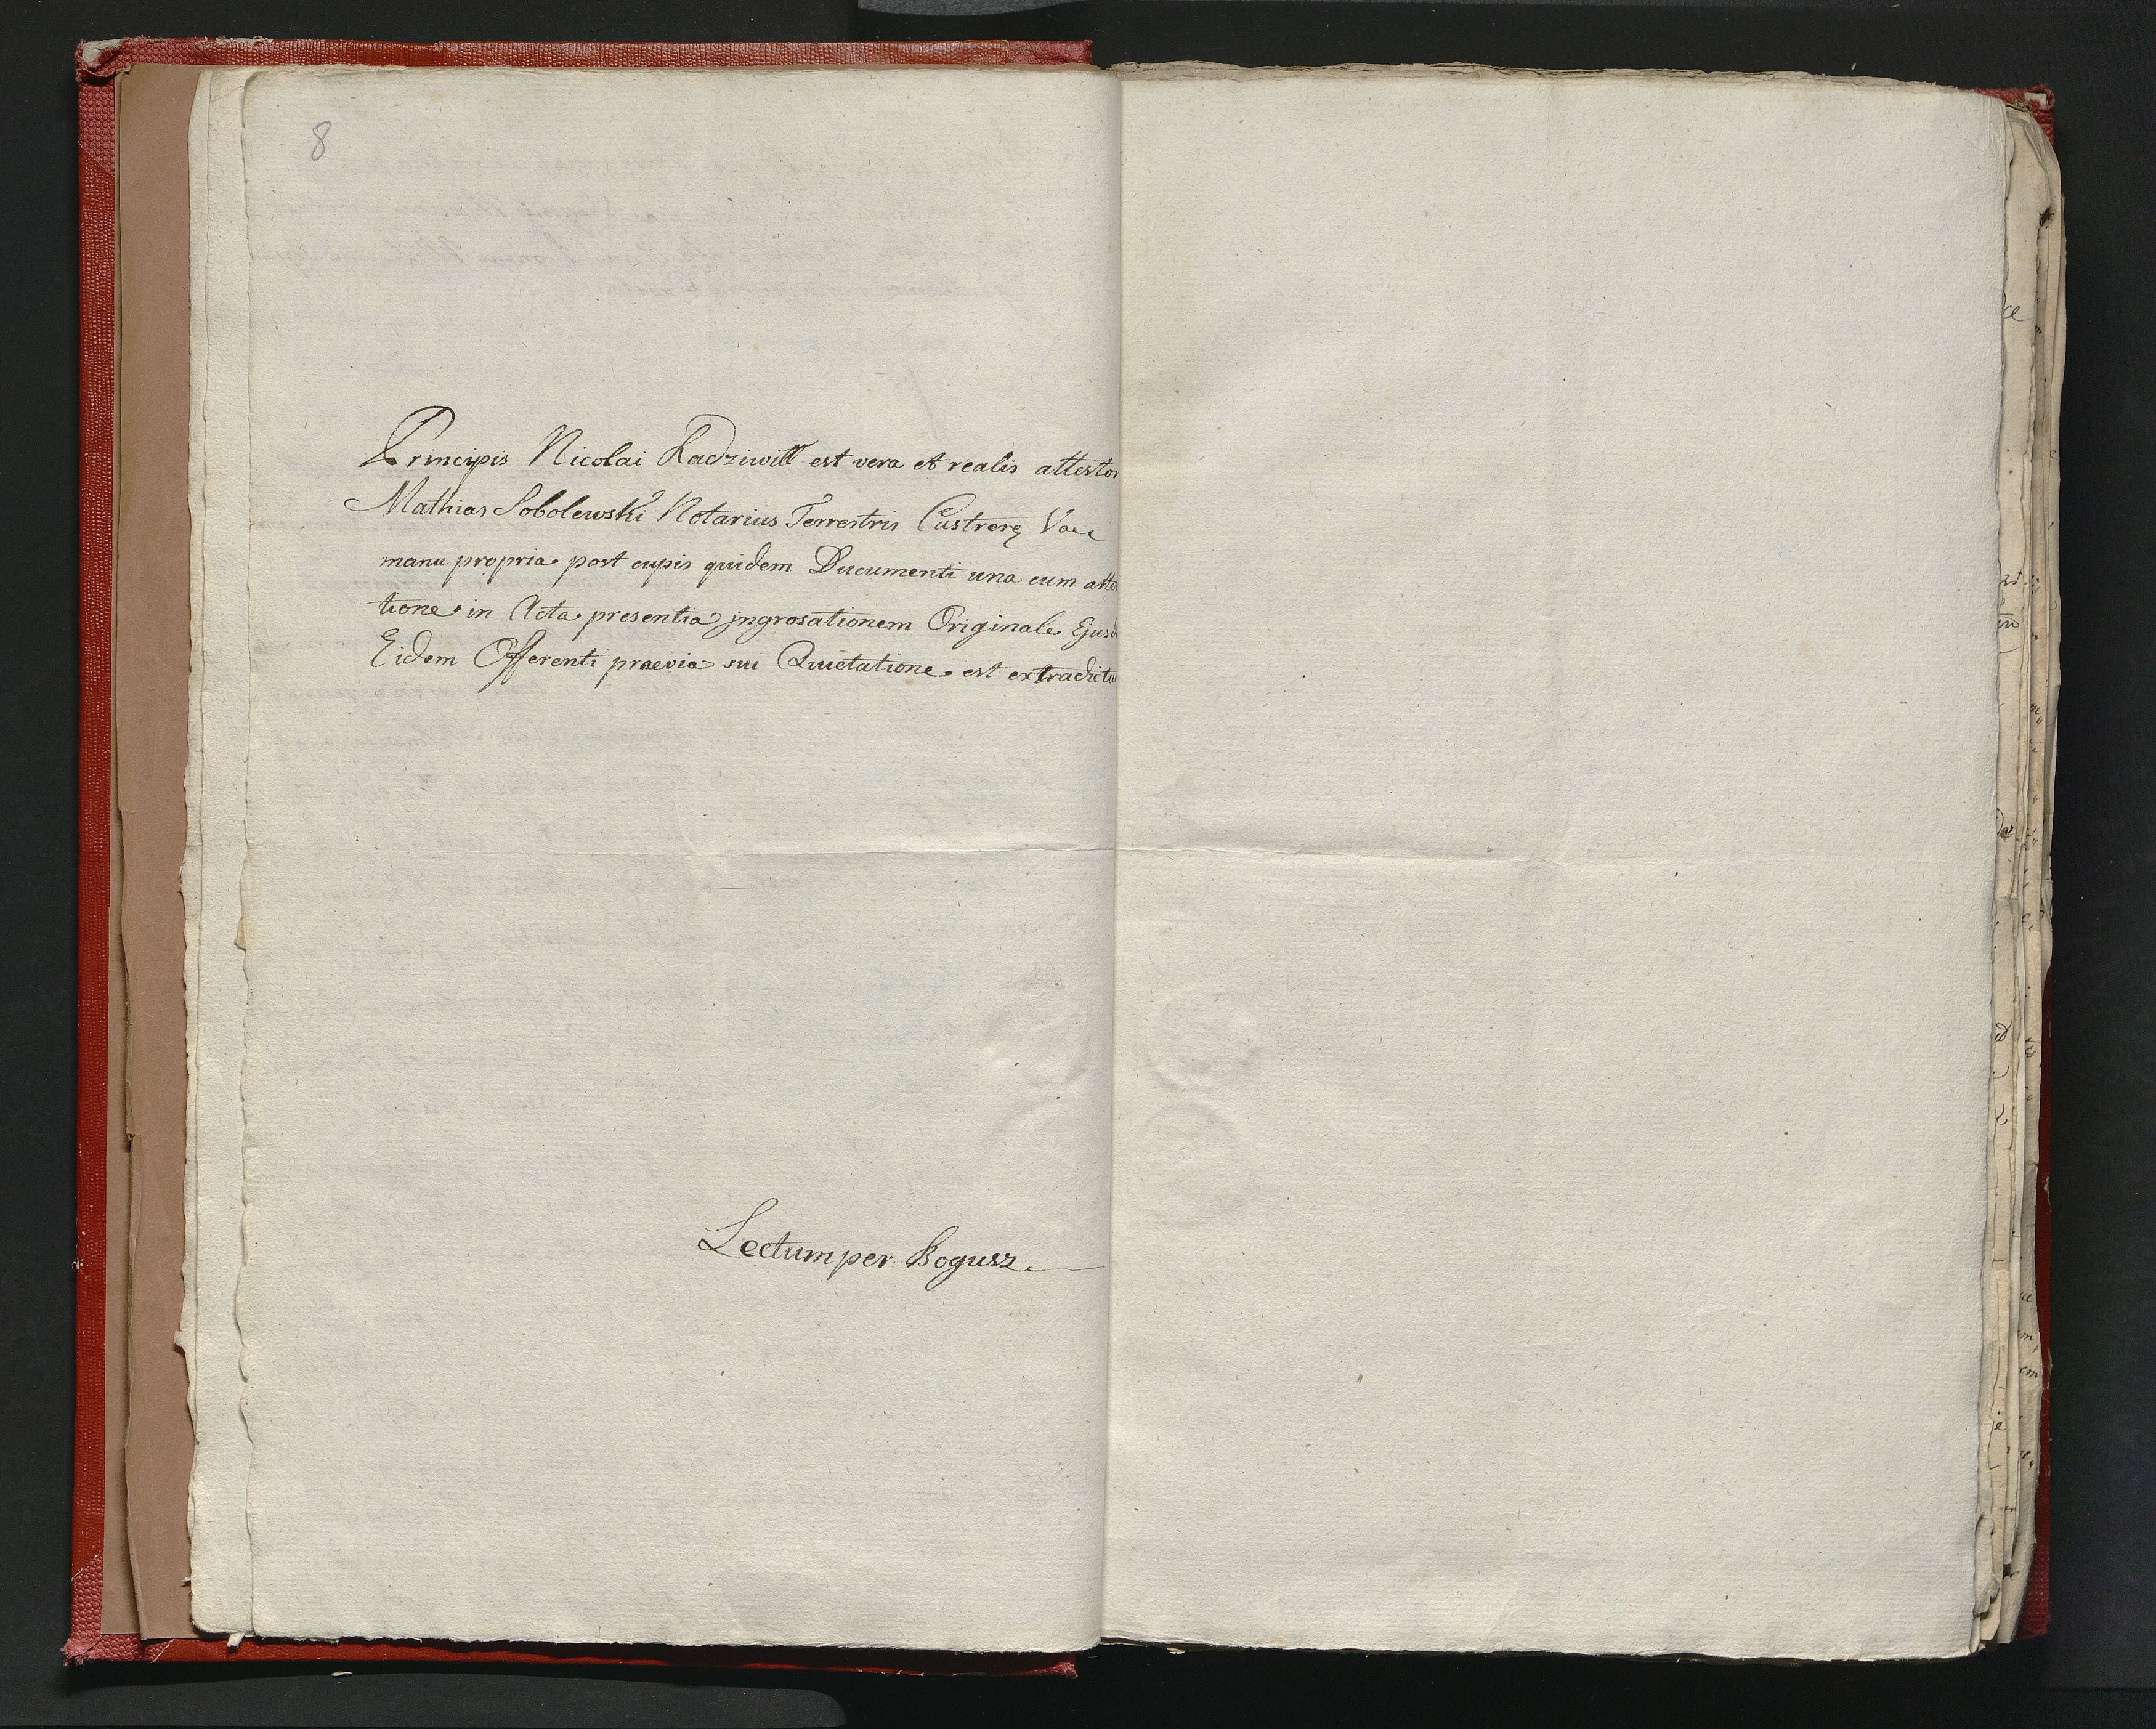 8
Principis Nicolai Radziwill est vera et realis attestor
Mathias Sobolewski Notarius Terrestris
manu propria post cujus quidem Ducumenti una cum
tione in Acta presentia jngrosationem Originale
Eidem Offerenti praevia sui Quietatione est
Lectum per Bogusz.